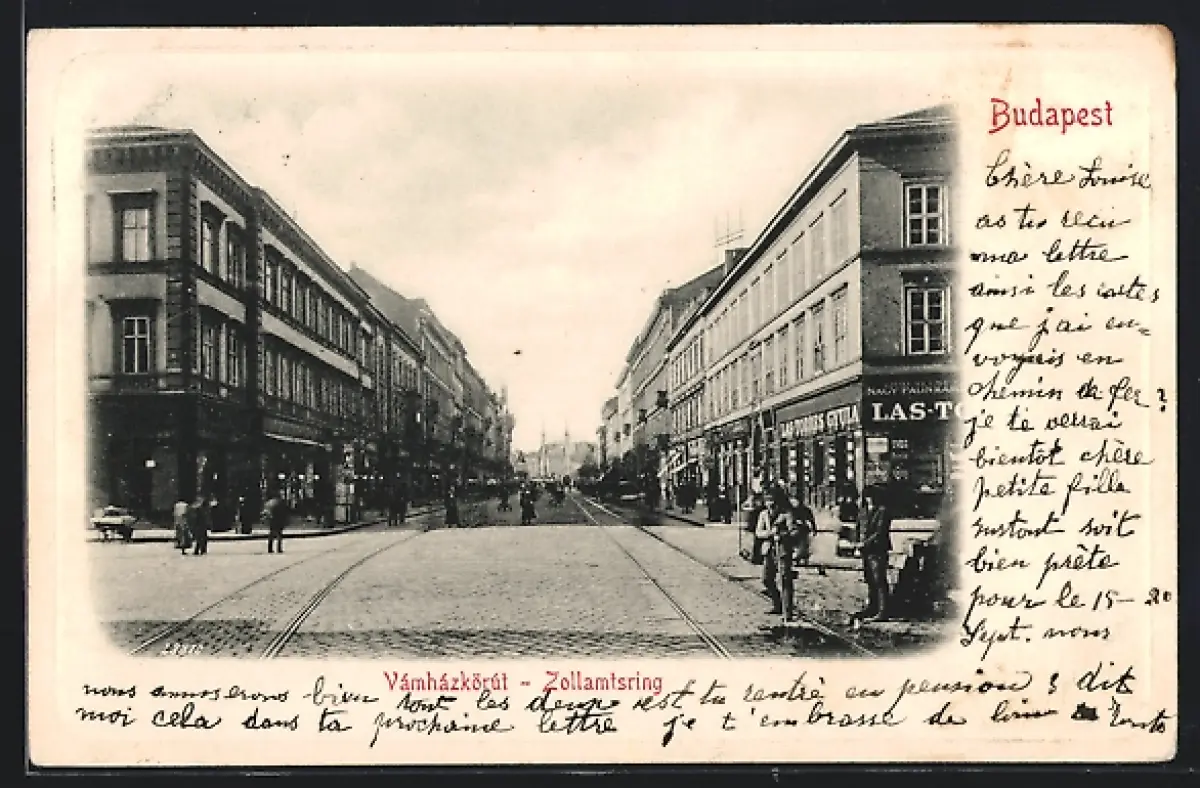 Budapest
Chère Louise
as tu reçu
ma lettre
ainsi les cartes
que j'ai en=
voyais en
chemin de fer?
je te verrai
bientôt chère
petite fille
surtout soit
bien prête
pour le 15-20
Sept. nous
Vámházkörút - Zollamtsring
nous amuserons bien tout les deux est tu rentré en pension? dit
moi cela dans ta prochaine lettre je t'embrasse de loin
LAS-TO
GYULA